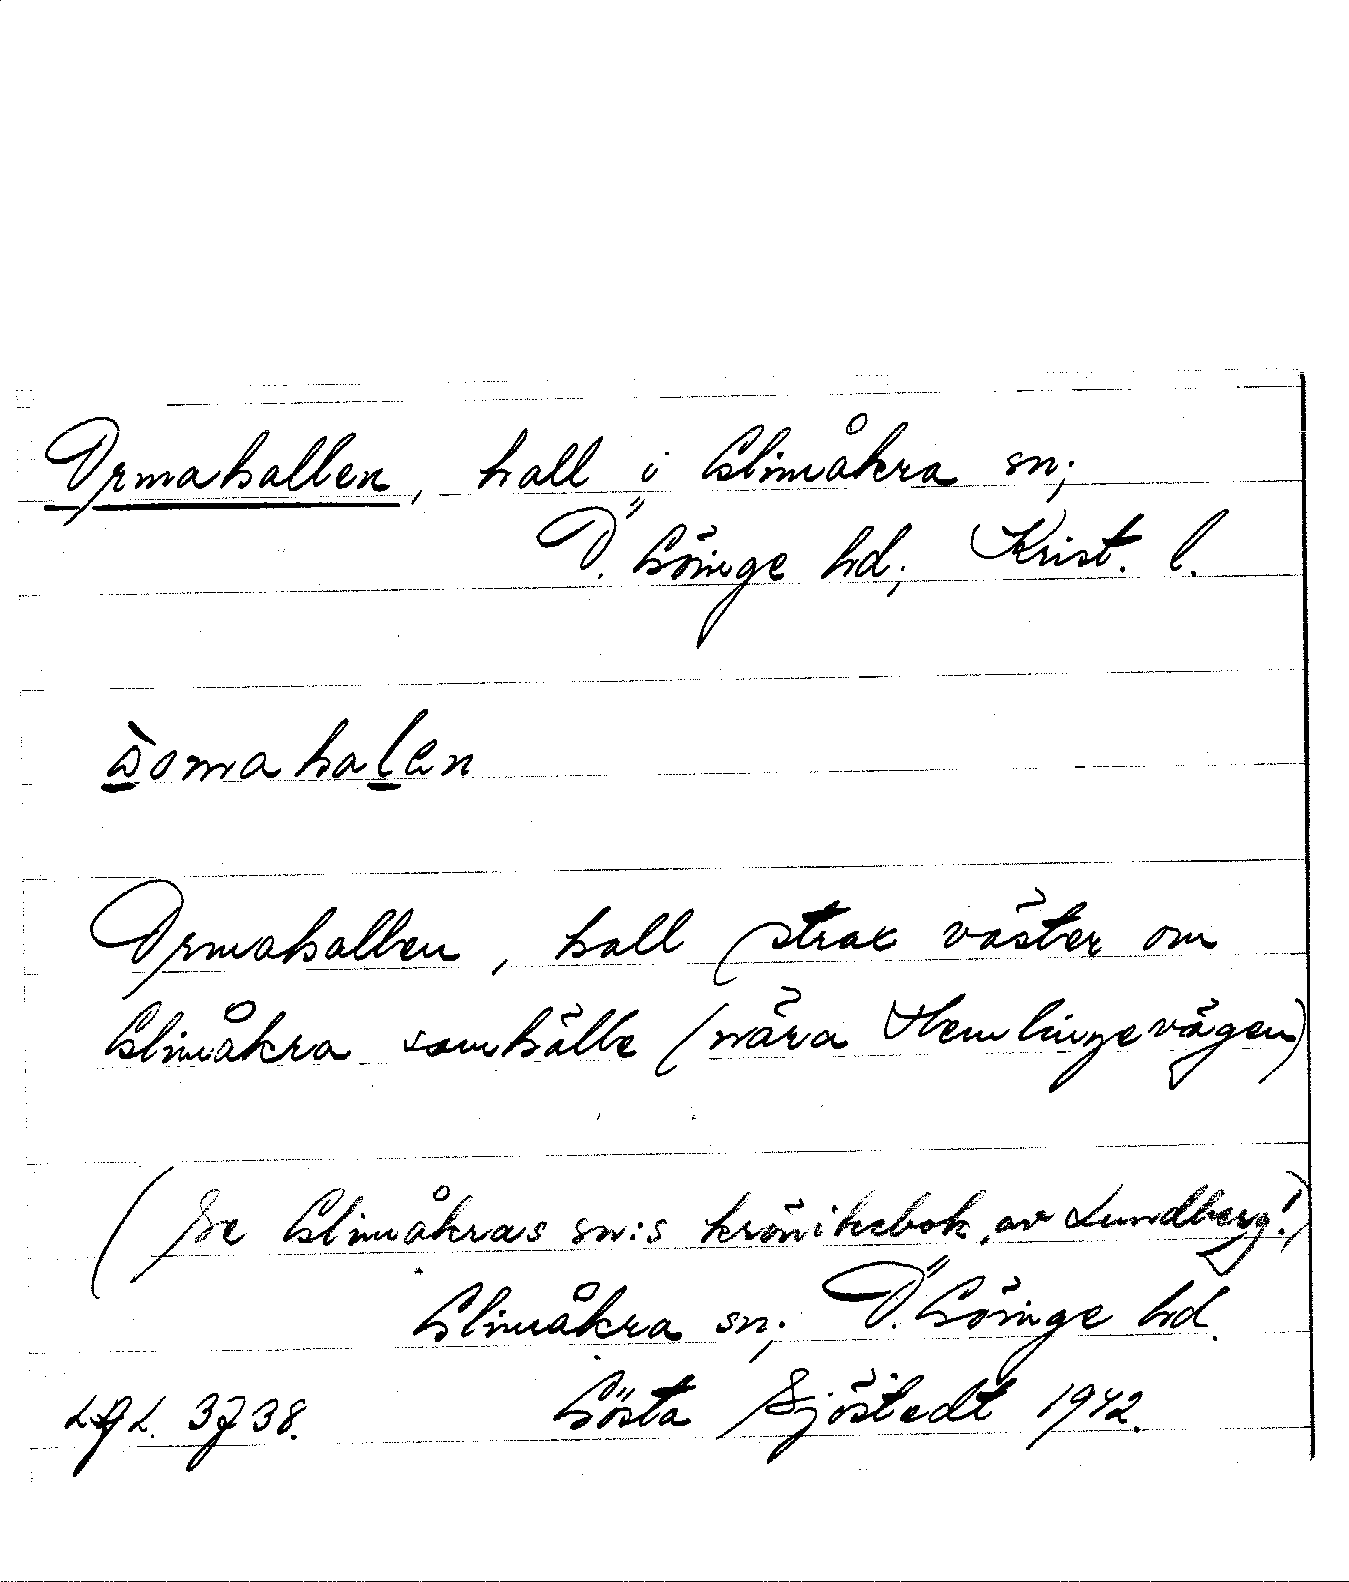 Ormahallen, hall i Glimåkra sn;
Ö. Göinge hd; Krist. l.
Ormahallen, hall strax väster om
Glimåkra samhälle (nära Hemlingevägen)
(Se Glimåkras sn:s krönikebok, av Lundberg!)
Glimåkra sn; Ö. Göinge hd.
3738. Gösta Sjöstedt 1942.